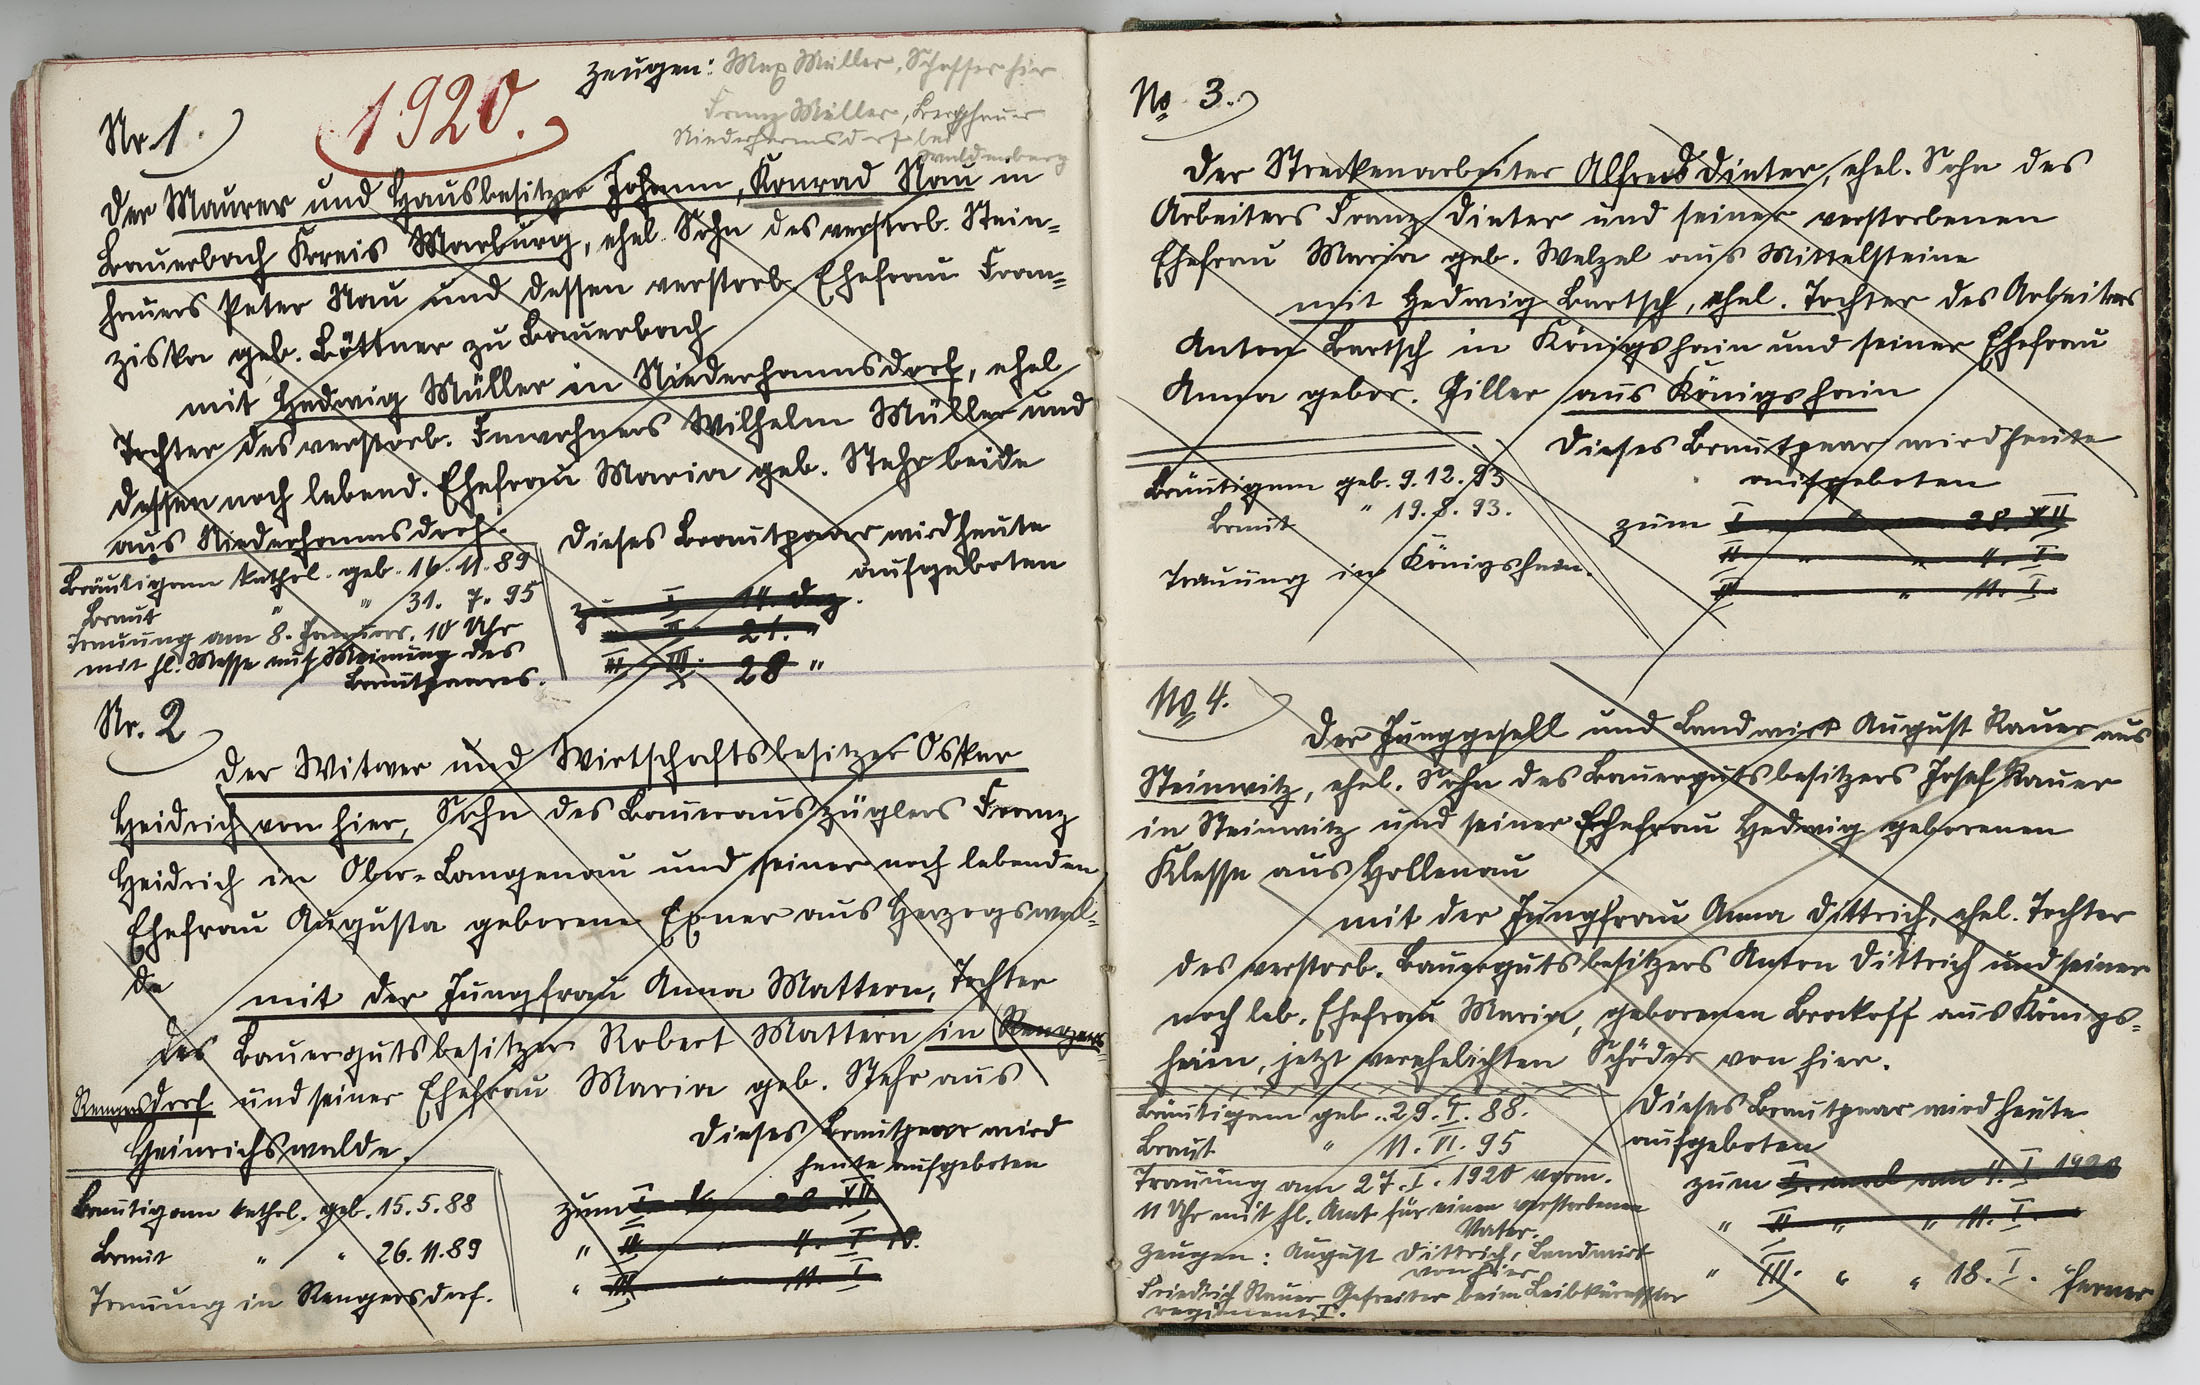 1920.
Zeugen: Max Müller, Schaffer hier
Franz Müller, Berghauer
Niederhermsdorf bei
Waldenberg
Nr. 1.
Der Maurer und Hausbesitzer Johann, Konrad Nau in
Bauerbach Kreis Marburg, ehel. Sohn des verstorb. Stein=
hauers Peter Nau und dessen verstorb. Ehefrau Fran=
ziska geb. Böttner zu Bauerbach
mit Hedwig Müller in Niederhannsdorf, ehel.
Tochter des verstorb. Inwohners Wilhelm Müller und
dessen noch lebend. Ehefrau Maria geb. Stehr beide
aus Niederhannsdorf.
Bräutigam kathol. geb. 16. 11. 89
Braut " " 31. 7. 95
Trauung am 8. Januar. 10 Uhr
mit hl. Messe auf Meinung des
Brautpaares.
Dieses Brautpaar wird heute
aufgeboten
zum I 14. Dez.
" II 21. "
" III. 28 "
Nr. 2
Der Witwer und Wirtschaftsbesitzer Oskar
Heidrich von hier, Sohn des Bauerauszüglers Franz
Heidrich in Ober-Langenau und seiner noch lebenden
Ehefrau Augusta geborene Exner aus Herzogswal=
de
mit der Jungfrau Anna Mattern, Tochter
des Bauergutsbesitzer Robert Mattern in (Rengers=
Rengersdorf und seiner Ehefrau Maria geb. Stehr aus
Heinrichswalde.
Bräutigam kathol. geb. 15. 5. 88
Braut " " 26. 11. 89
Trauung in Rengersdorf.
Dieses Brautpaar wird
heute aufgeboten
zum I. 28. XII
" II " 4. I
" III " 11. I
No 3.
Der Streckenarbeiter Alfred Dinter, ehel. Sohn des
Arbeiters Franz Dinter und seiner verstorbenen
Ehefrau Maria geb. Welzel aus Mittelsteine
mit Hedwig Bartsch, ehel. Tochter des Arbeiters
Anton Bartsch in Königshain und seiner Ehefrau
Anna gebor. Giller aus Königshain
Bräutigam geb. 9. 12. 93
Braut " 19. 8. 93.
Trauung in Königshain.
Dieses Brautpaar wird heute
aufgeboten
zum I 28. XII
II " " 4. I
III " 11. I.
No 4.
Der Junggesell und Landwirt August Rauer aus
Steinwitz, ehel. Sohn des Bauergutsbesitzers Josef Rauer
in Steinwitz und seiner Ehefrau Hedwig geborenen
Klesse aus Hollenau
mit der Jungfrau Anna Dittrich, ehel. Tochter
des verstorb. Bauergutsbesitzers Anton Dittrich und seiner
noch leb. Ehefrau Maria, geborenen Brockoff aus Königs=
hain, jetzt verehelichten Schöder von hier.
Bräutigam geb. 29. I. 88.
Braut " 11. VI. 95
Trauung am 27. I. 1920 vorm.
11 Uhr mit hl. Amt für einen verstorbenen
Vater.
Zeugen: August Dittrich, Landwirt
von hier
Friedrich Rauer Gefreiter beim Leibkürassier
regiment I.
Dieses Brautpaar wird heute
aufgeboten
zum I. mal am 4. I. 1920
" II " " 11. I.
" III. " " 18. I. ferner